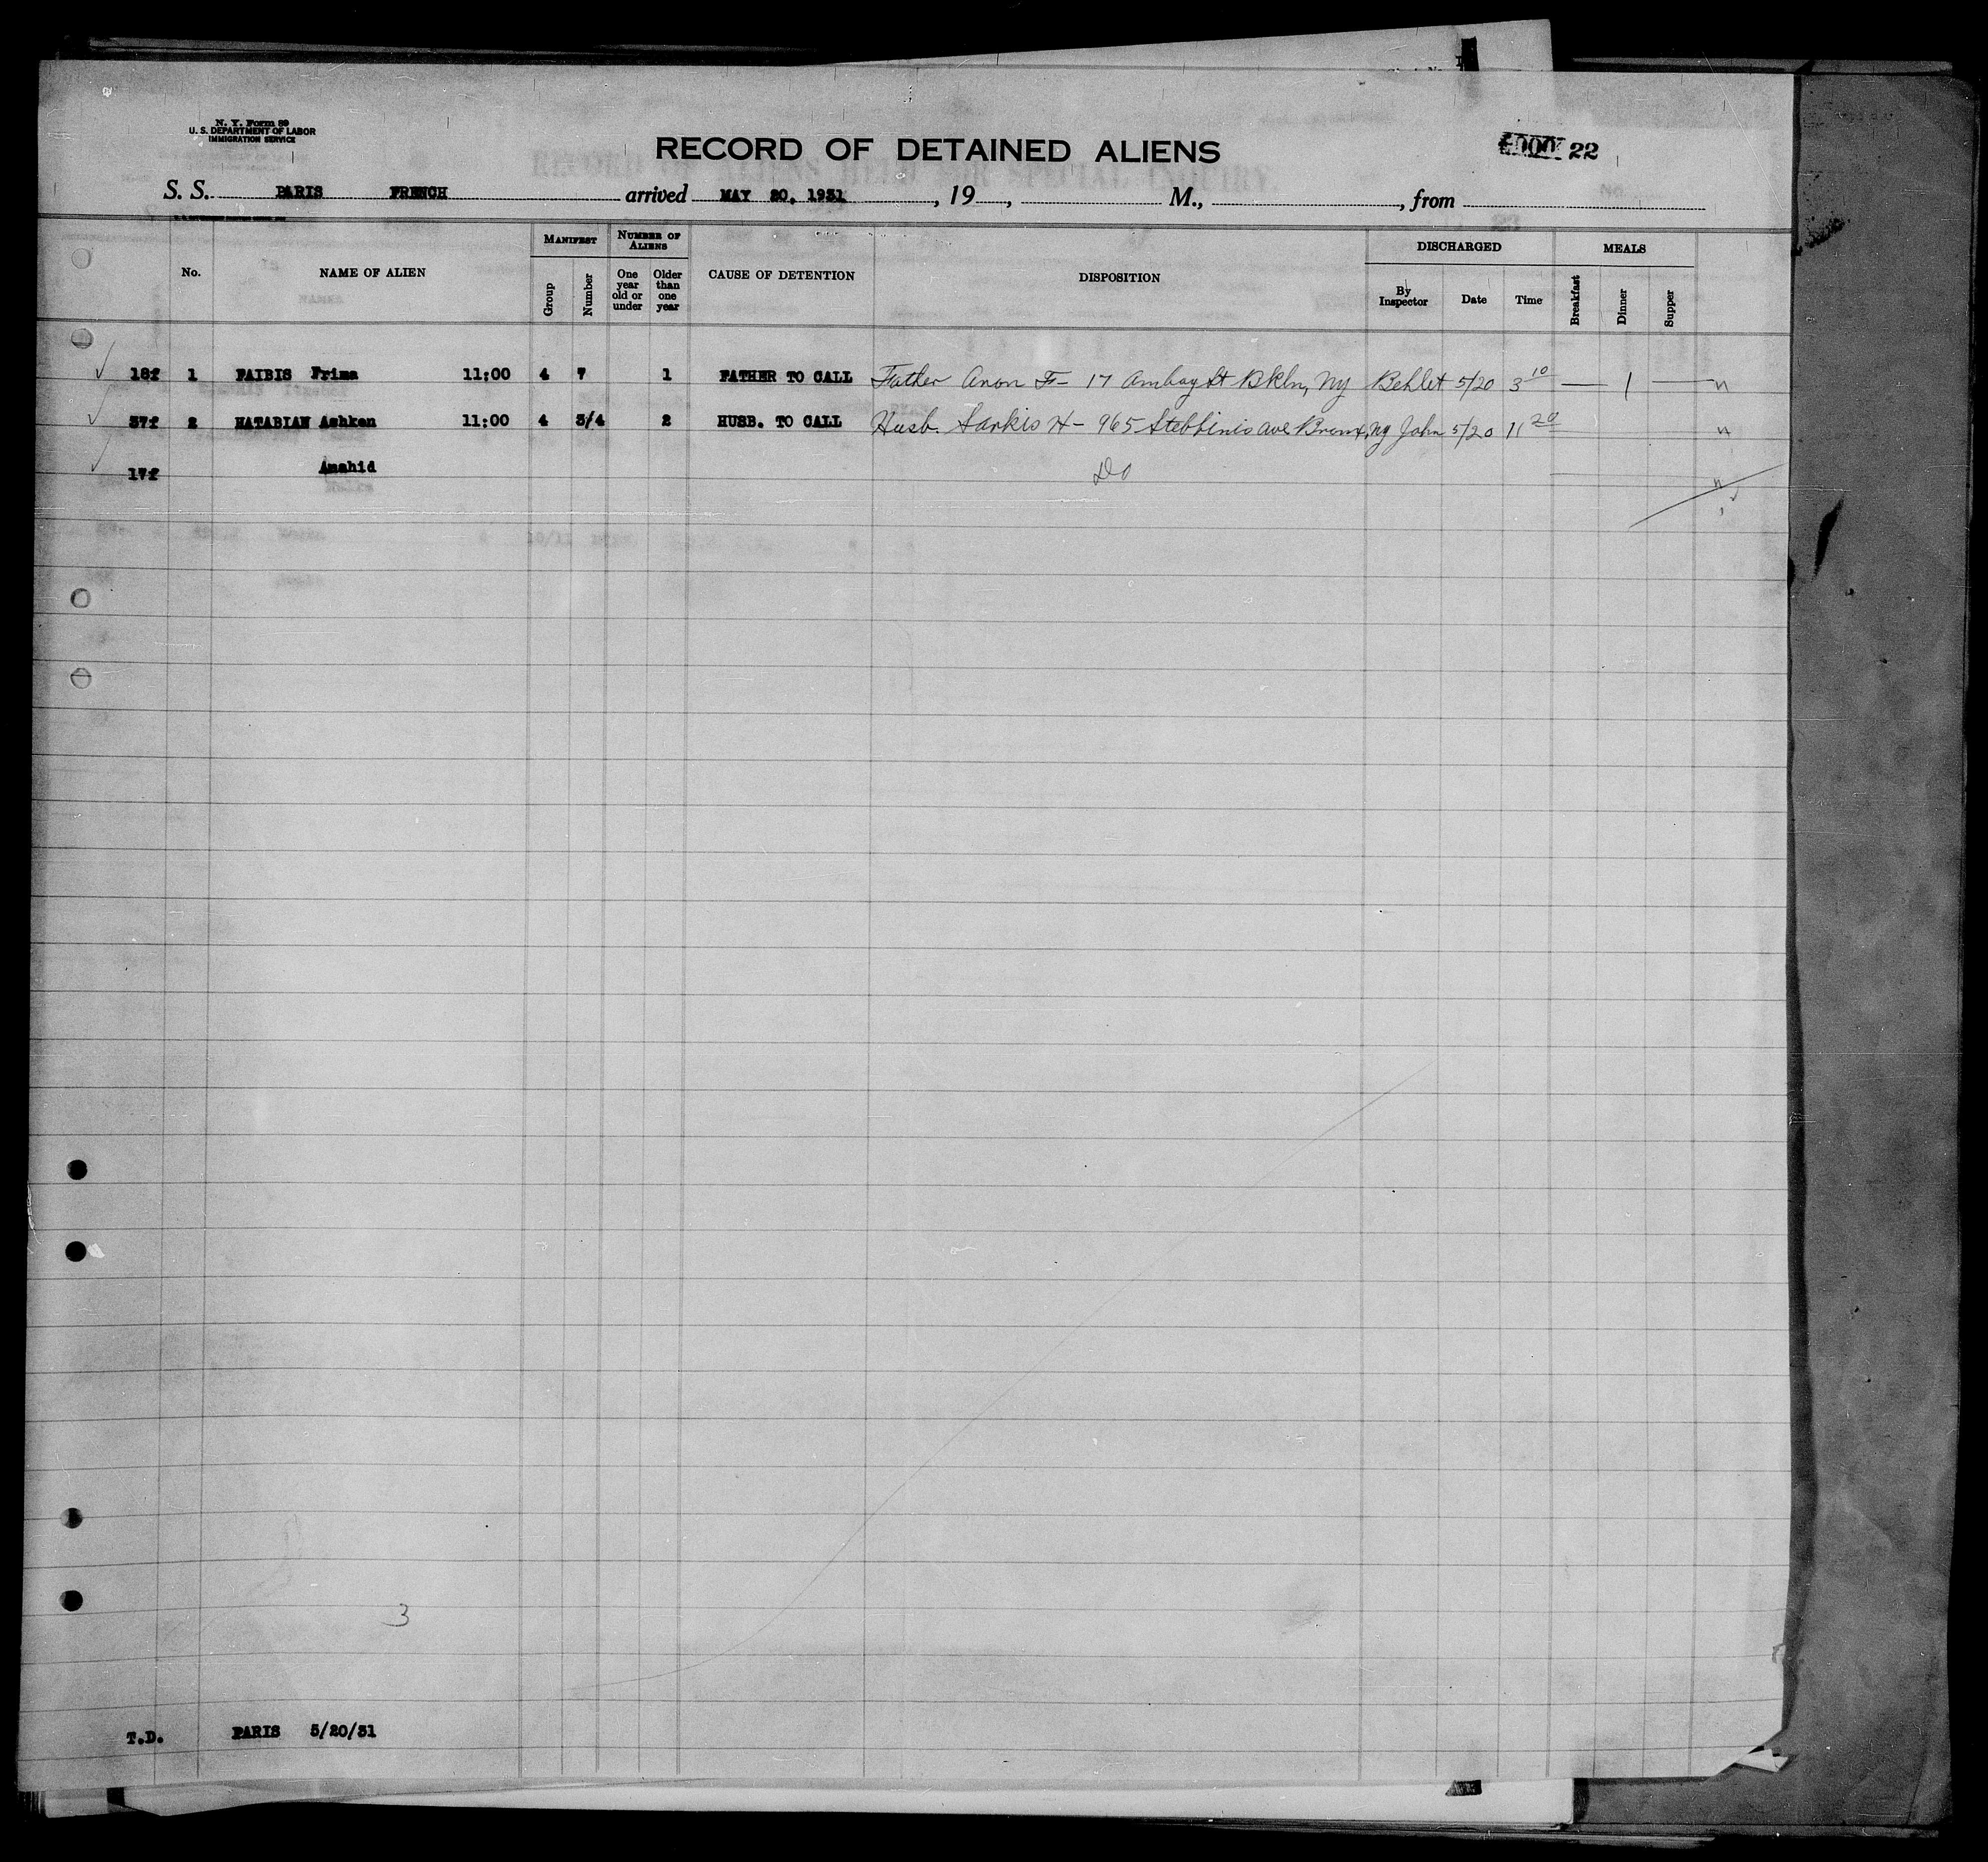 N. Y. Form 89
U. S. DEPARTMENT OF LABOR
IMMIGRATION SERVICE
RECORD OF DETAINED ALIENS
22
S. S. PARIS FRENCH arrived MAY 20, 1931, 19, M., , from
No. NAME OF ALIEN MANIFEST Group Number NUMBER OF ALIENS One year old or under Older than one year CAUSE OF DETENTION DISPOSITION DISCHARGED By Inspector Date Time MEALS Breakfast Dinner Supper
18f 1 FAIBIS Frima 11:00 4 7 1 FATHER TO CALL Father Aron F- 17 Amboy St Bkln, Ny 5/20 3 10 — 1 —
37f 2 HATABIAN Ashken 11:00 4 3/4 2 HUSB. TO CALL Husb. Sarkis H- 965 Stebbins ave Bronx, Ny John 5/20 11 20
17f Anahid Do
3
T.D. PARIS 5/20/31